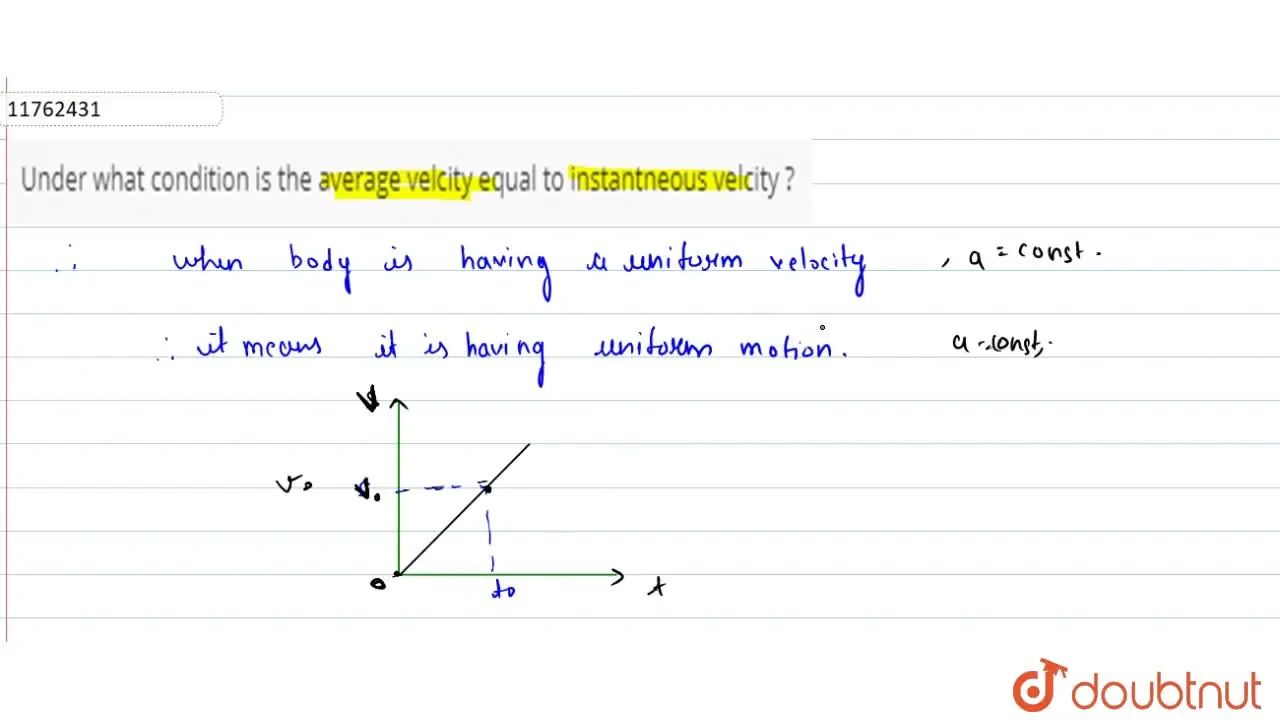 11762431
Under what condition is the average velcity equal to instantneous velcity ?
∴ when body is having a uniform velocity , a = const.
∴ it means it is having uniform motion. a = const,.
V
v₀ V₀
0 t₀ t
doubtnut